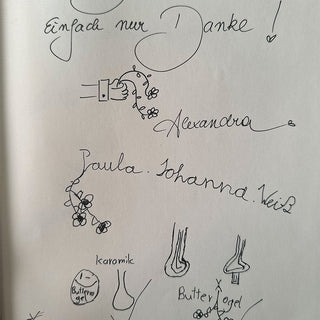 Einfach nur Danke!
Alexandra
Paula. Johanna. Weiß
Karamik
Butter
ogel